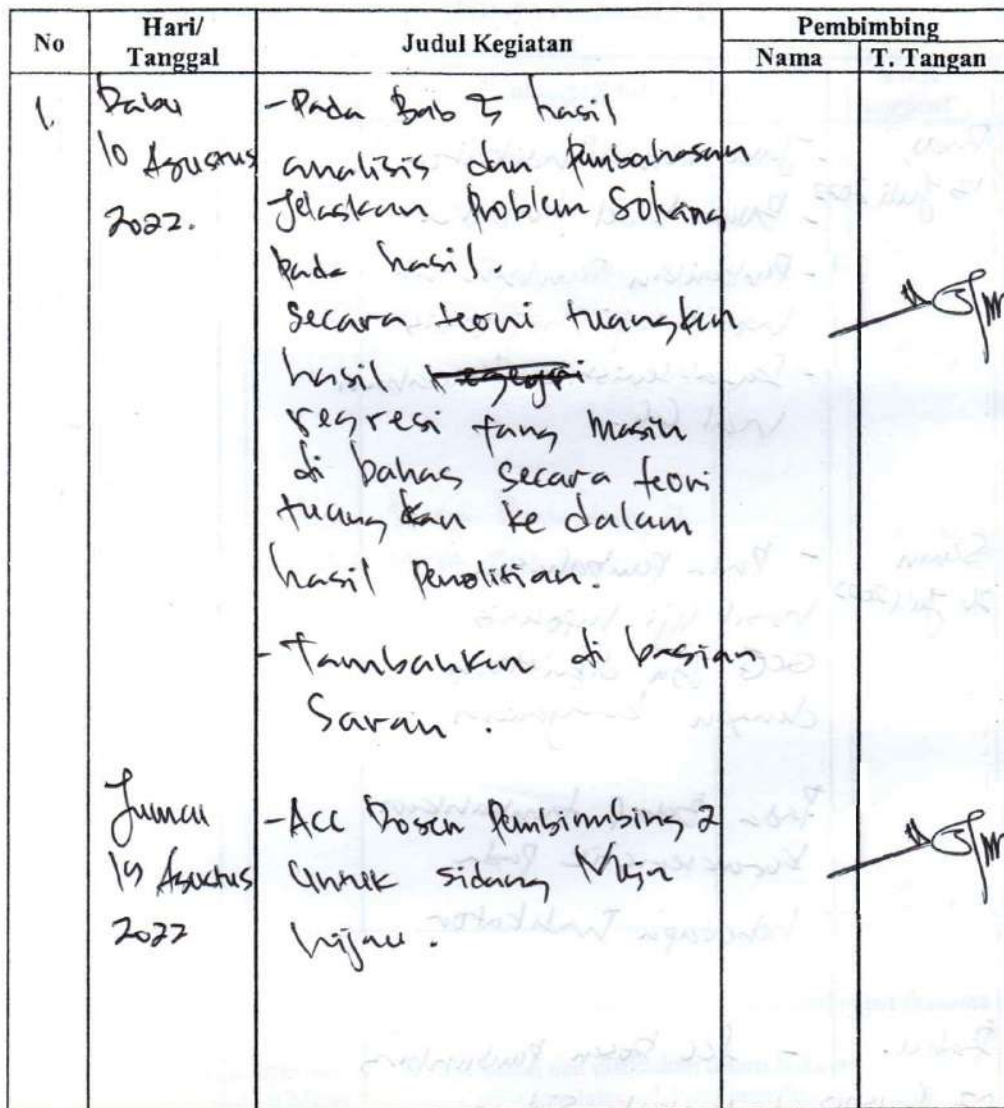 No
Hari/
Tanggal
Judul Kegiatan
Pembimbing
Nama
T. Tangan
1.
Rabu
10 Agustus
2022.
- Pada Bab 5 hasil
analisis dan Pembahasan
Jelaskan Problem Solving
pada hasil.
secara teori tuangkan
hasil
regresi yang masih
di bahas secara teori
tuangkan ke dalam
hasil Penelitian.
- Tambahkan di bagian
Saran.
Jumat
19 Agustus
2022
- Acc Dosen Pembimbing 2
untuk sidang Meja
hijau.